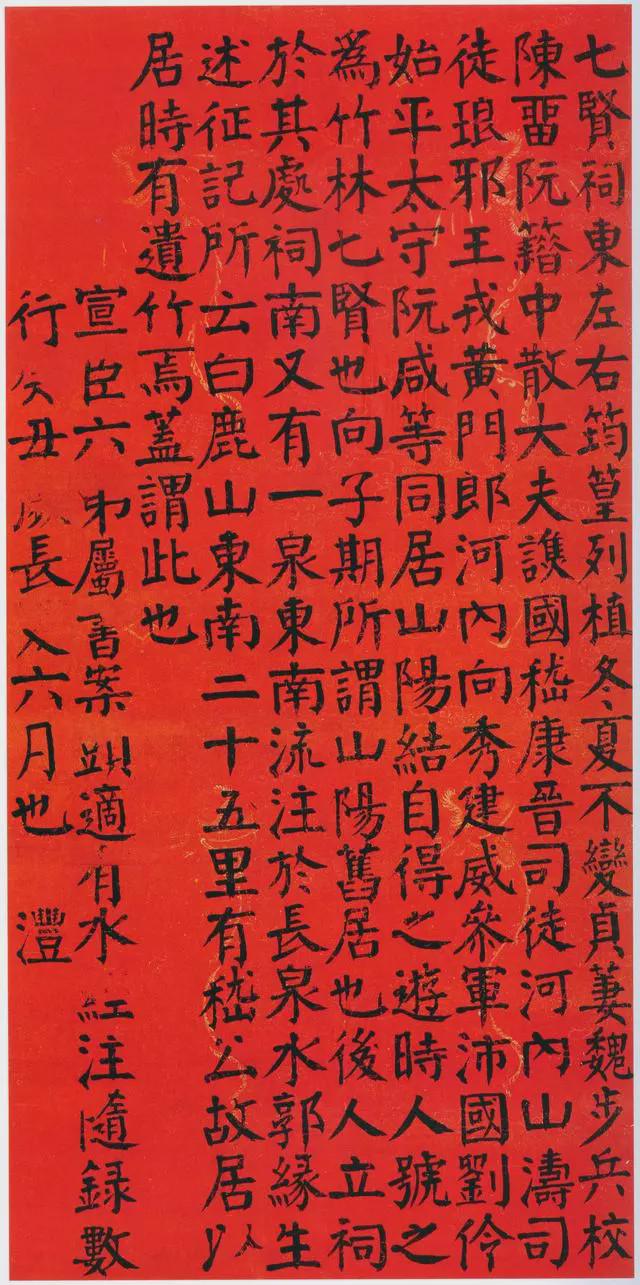 七賢祠東左右筠篁列植冬夏不變貞萋魏步兵校
陳畱阮籍中散大夫譙國嵇康晉司徒河內山濤司
徒琅邪王戎黃門郎河內向秀建威參軍沛國劉伶
始平太守阮咸等同居山陽結自得之遊時人號之
為竹林七賢也向子期所謂山陽舊居也後人立祠
於其處祠南又有一泉東南流注於長泉水郭緣生
述征記所云白鹿山東南二十五里有嵇公故居以
居時有遺竹焉蓋謂此也
宣臣六弟屬書案頭適有水經注隨録數
行癸丑歲長至六月也 澧